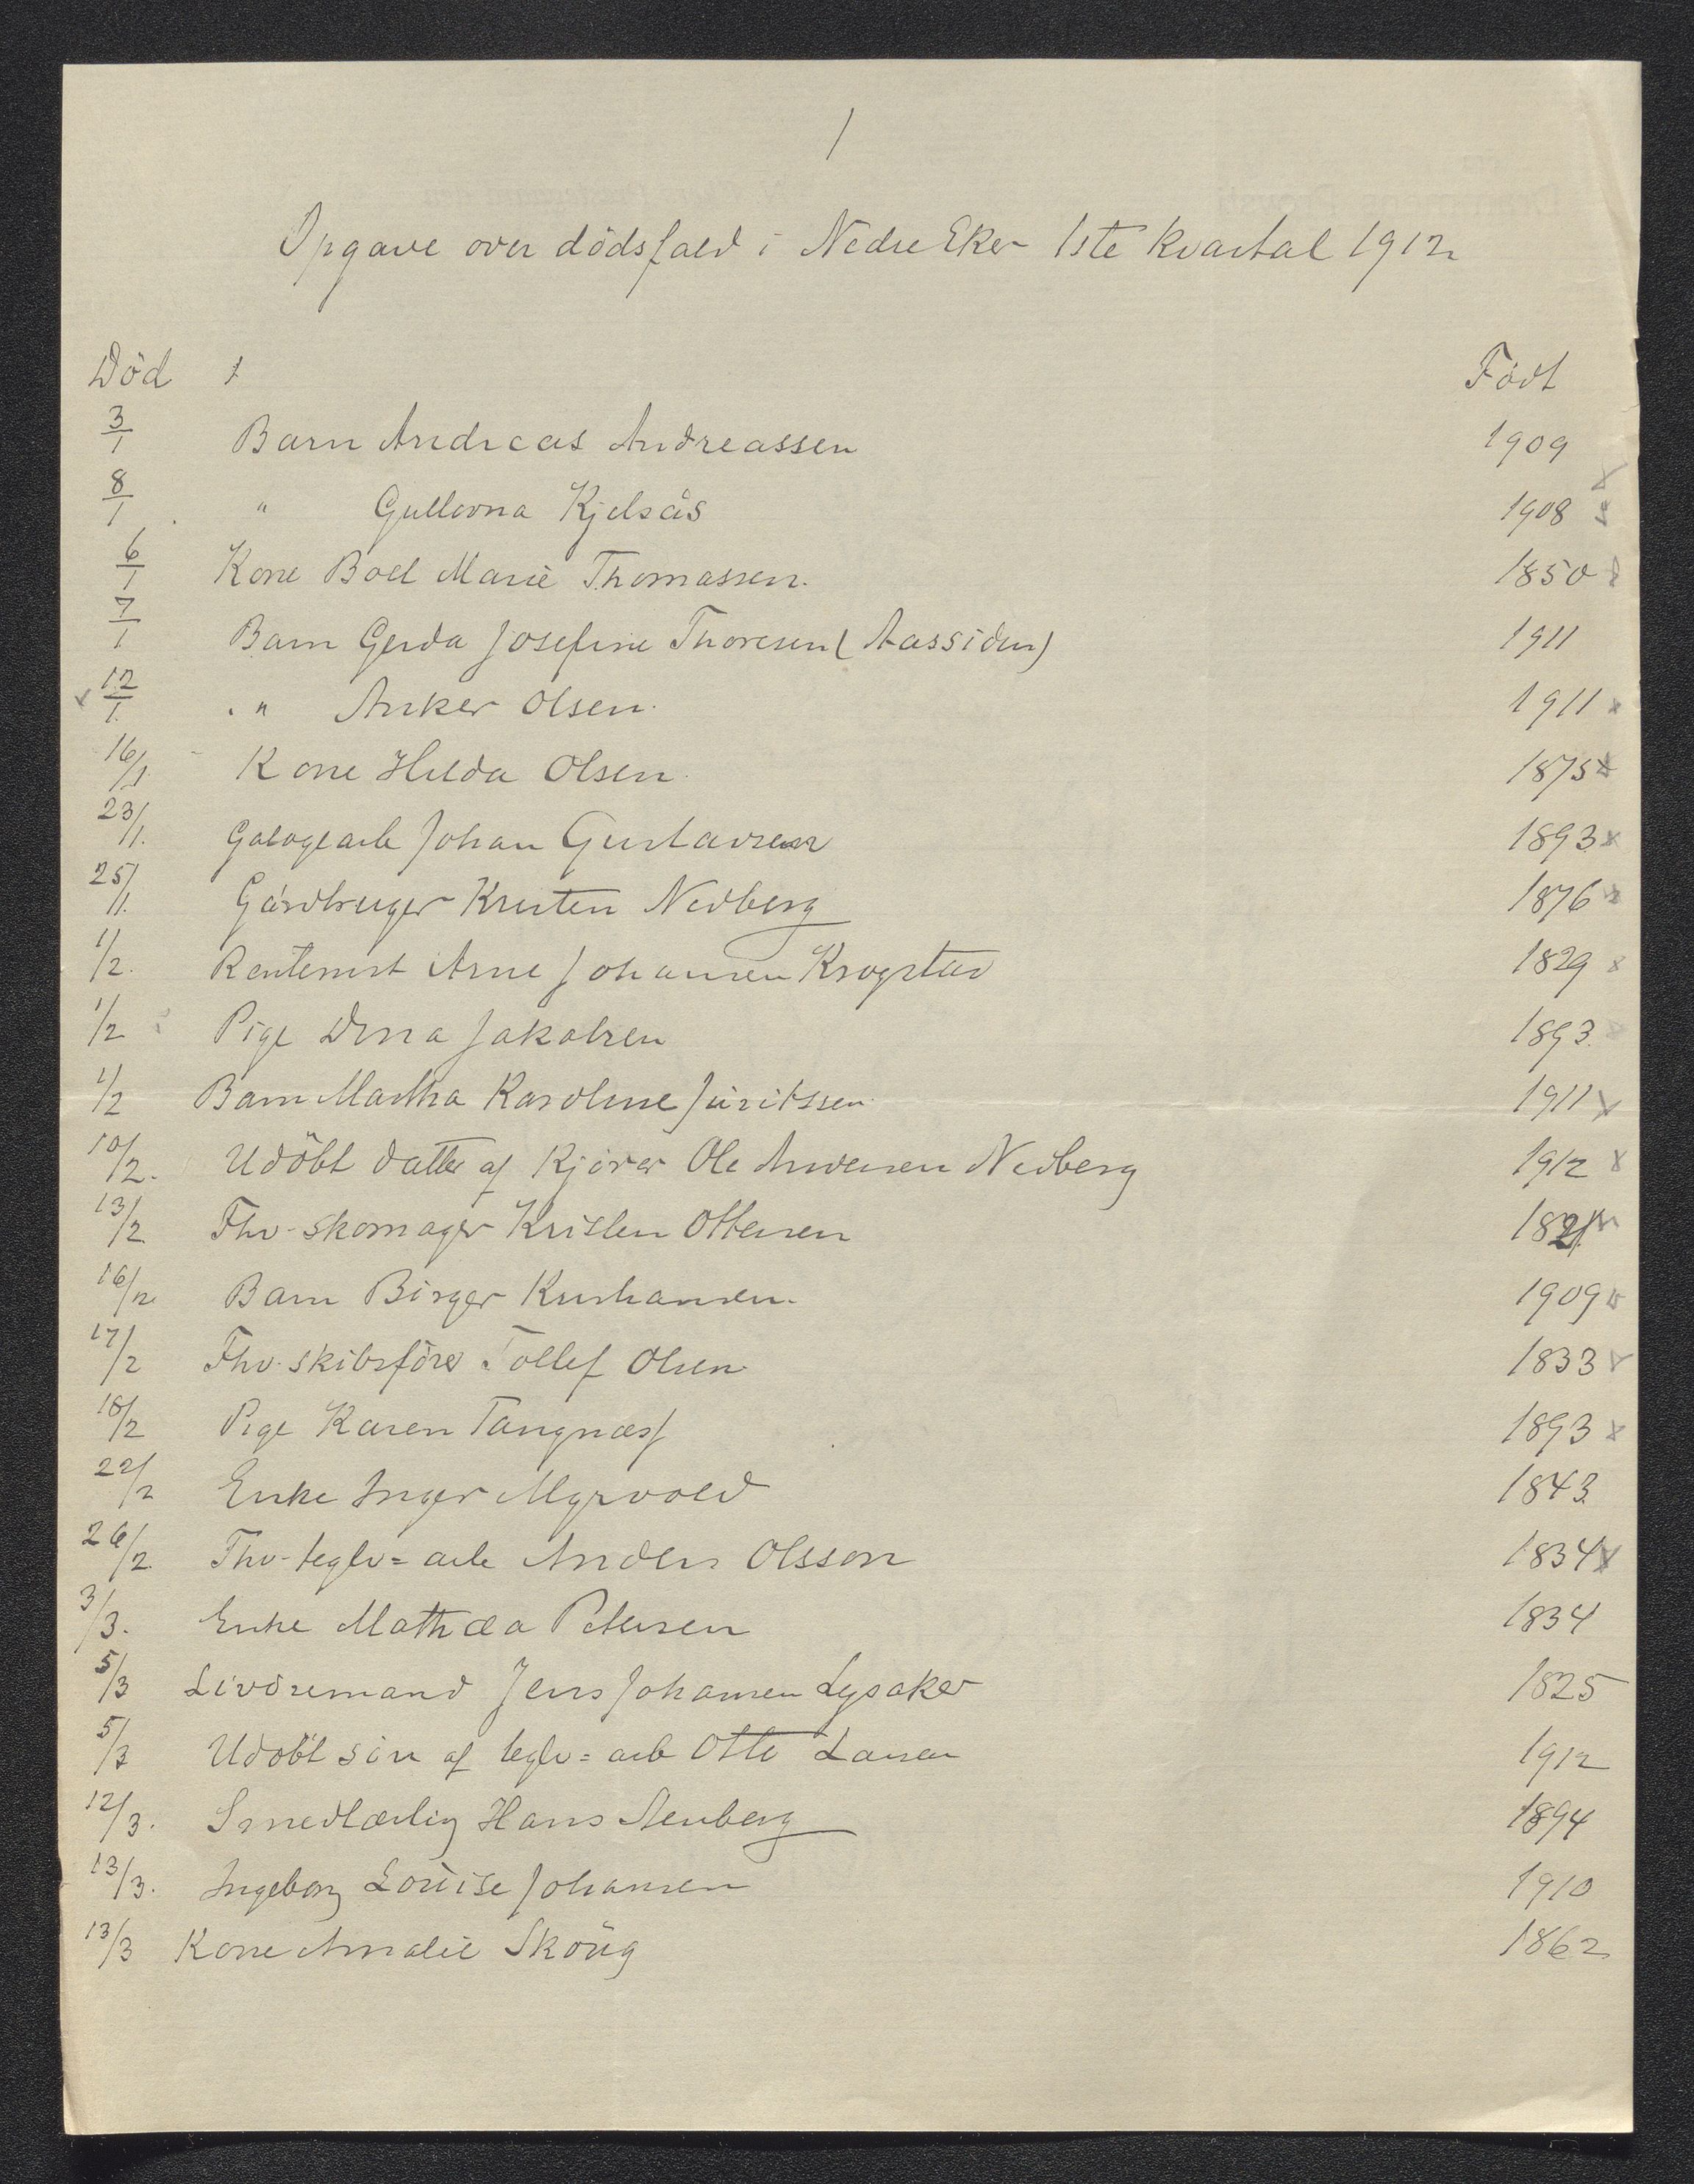 1
Opgave over dödsfald i Nedre Eker 1ste kvartal 1912
Död Födt
3/1 Barn Andreas Andreassen 1909
8/1 " Gullovna Kjelsås 1908
6/1 Kone Boel Marie Thomassen. 1850
7/1 Barn Gerda Josefine Thoresen (Aassiden) 1911
12/1. " Anker Olsen. 1911
16/1 Kone Hilda Olsen. 1875
23/1. Johan Gustavsen 1893
25/1. Gårdbruger Kristen Nedberg 1876
1/2. Rentenist Arne Johansen Krogstad 1829
1/2 Pige Dina Jakobsen 1893.
1/2 Barn Martha Karoline Juritssen 1911
10/2. Udöbt datter af Kjörer Ole Andersen Nedberg 1912
13/2 Fhv. skomager Kristen Ottersen 1821.
16/2. Barn Birger Kristiansen. 1909
17/2 Fhv. skibsförer Tollef Olsen 1833
18/2 Pige Karen Tangnæs 1893
22/2 Enke Inger Myrvold 1843.
26/2. Fhv. teglv= arb Anders Olsson 1834
3/3. Enke Mathilda Petersen 1834
5/3 Livöremand Jens Johansen Lysaker 1825
5/3 Udöbt sön af teglv= arb Otto Larsen 1912
12/3. Smedlærling Hans Stenberg 1894
13/3. Ingeborg Louise Johansen 1910
13/3 Kone Amalie Skoug 1862